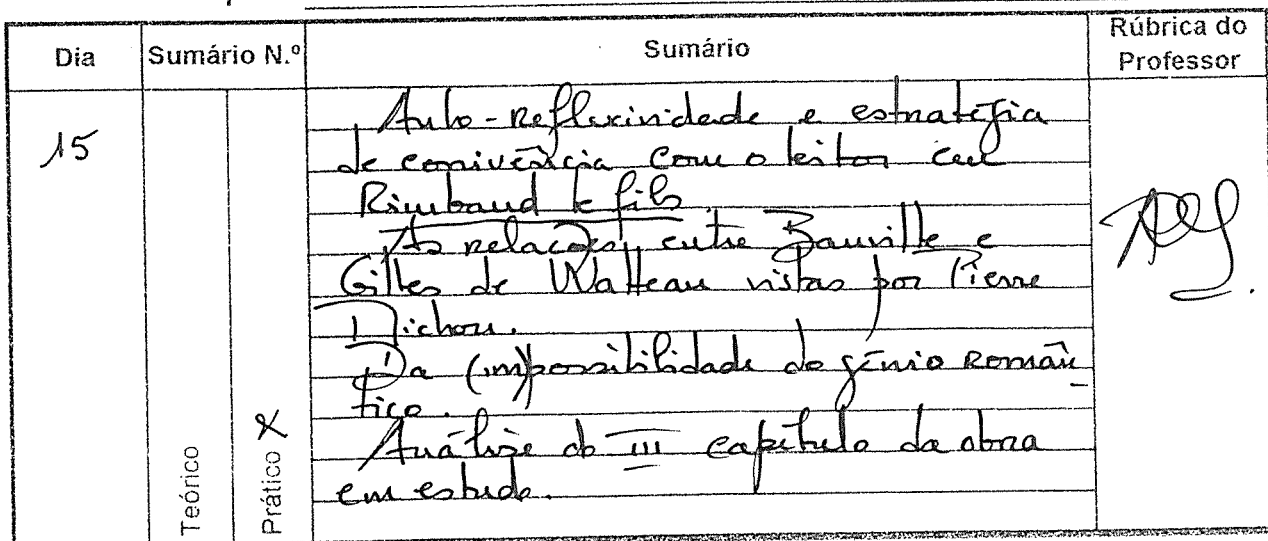 Dia Sumário N.º Sumário Rúbrica do Professor
15
Auto-Reflexividade e estratégia
de conivência com o leitor em
Rimbaud le fils.
As relações entre Banville e
Gilles de Watteau vistas por Pierre
Michon.
Da (im)possibilidade do génio român
tico.
Análise do III capítulo da obra
em estudo.
Teórico
Prático X